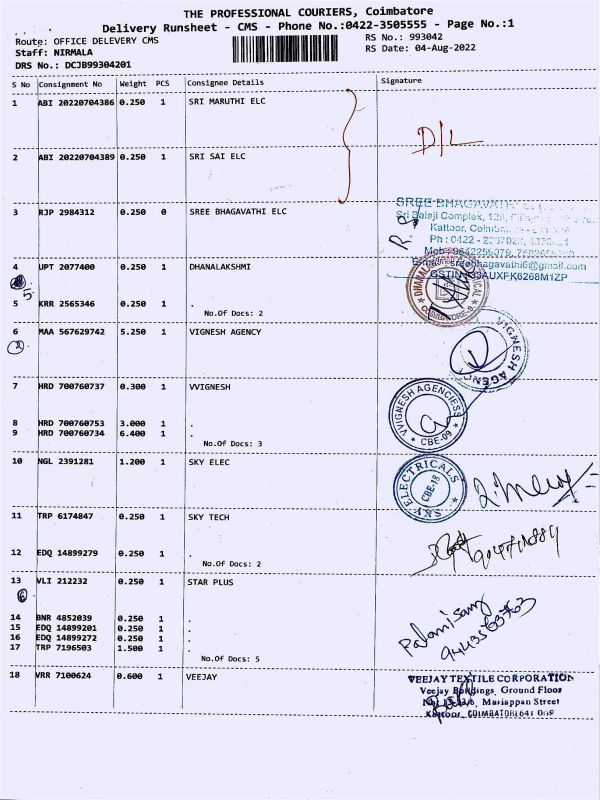 THE PROFESSIONAL COURIERS, Coimbatore
Delivery Runsheet - CMS - Phone No.:0422-3505555 - Page No.:1
Route: OFFICE DELEVERY CMS
RS No.: 993042
Staff: NIRMALA
RS Date: 04-Aug-2022
DRS No.: DCJB99304201
S No Consignment No Weight PCS Consignee Details Signature
1 ABI 20220704386 0.250 1 SRI MARUTHI ELC
D/L
2 ABI 20220704389 0.250 1 SRI SAI ELC
3 RJP 2984312 0.250 0 SREE BHAGAVATHI ELC
SREE BHAGAVATHI
Sri Balaji Complex,
Kattoor,
Ph : 0422 -
Mob :
sreebhagavathi6@gmail.com
4 UPT 2077400 0.250 1 DHANALAKSHMI
5
5 KRR 2565346 0.250 1 .
No.Of Docs: 2
6 MAA 567629742 5.250 1 VIGNESH AGENCY
2
VIGNESH AGENC
7 HRD 700760737 0.300 1 VVIGNESH
VVIGNESH AGENCIESS
CBE-09
8 HRD 700760753 3.000 1 .
9 HRD 700760734 6.400 1 .
No.Of Docs: 3
10 NGL 2391281 1.200 1 SKY ELEC
SKY ELECTRICALS
11 TRP 6174847 0.250 1 SKY TECH
12 EDQ 14899279 0.250 1 .
No.Of Docs: 2
13 VLI 212232 0.250 1 STAR PLUS
6
14 BNR 4852039 0.250 1 .
15 EDQ 14899201 0.250 1 .
16 EDQ 14899272 0.250 1 .
17 TRP 7196503 1.500 1 .
No.Of Docs: 5
Palanisamy
9443563763
18 VRR 7100624 0.600 1 VEEJAY
VEEJAY TEXTILE CORPORATION
Veejay Buildings, Ground Floor
Mariappan Street
Kattoor, COIMBATORE-641 009